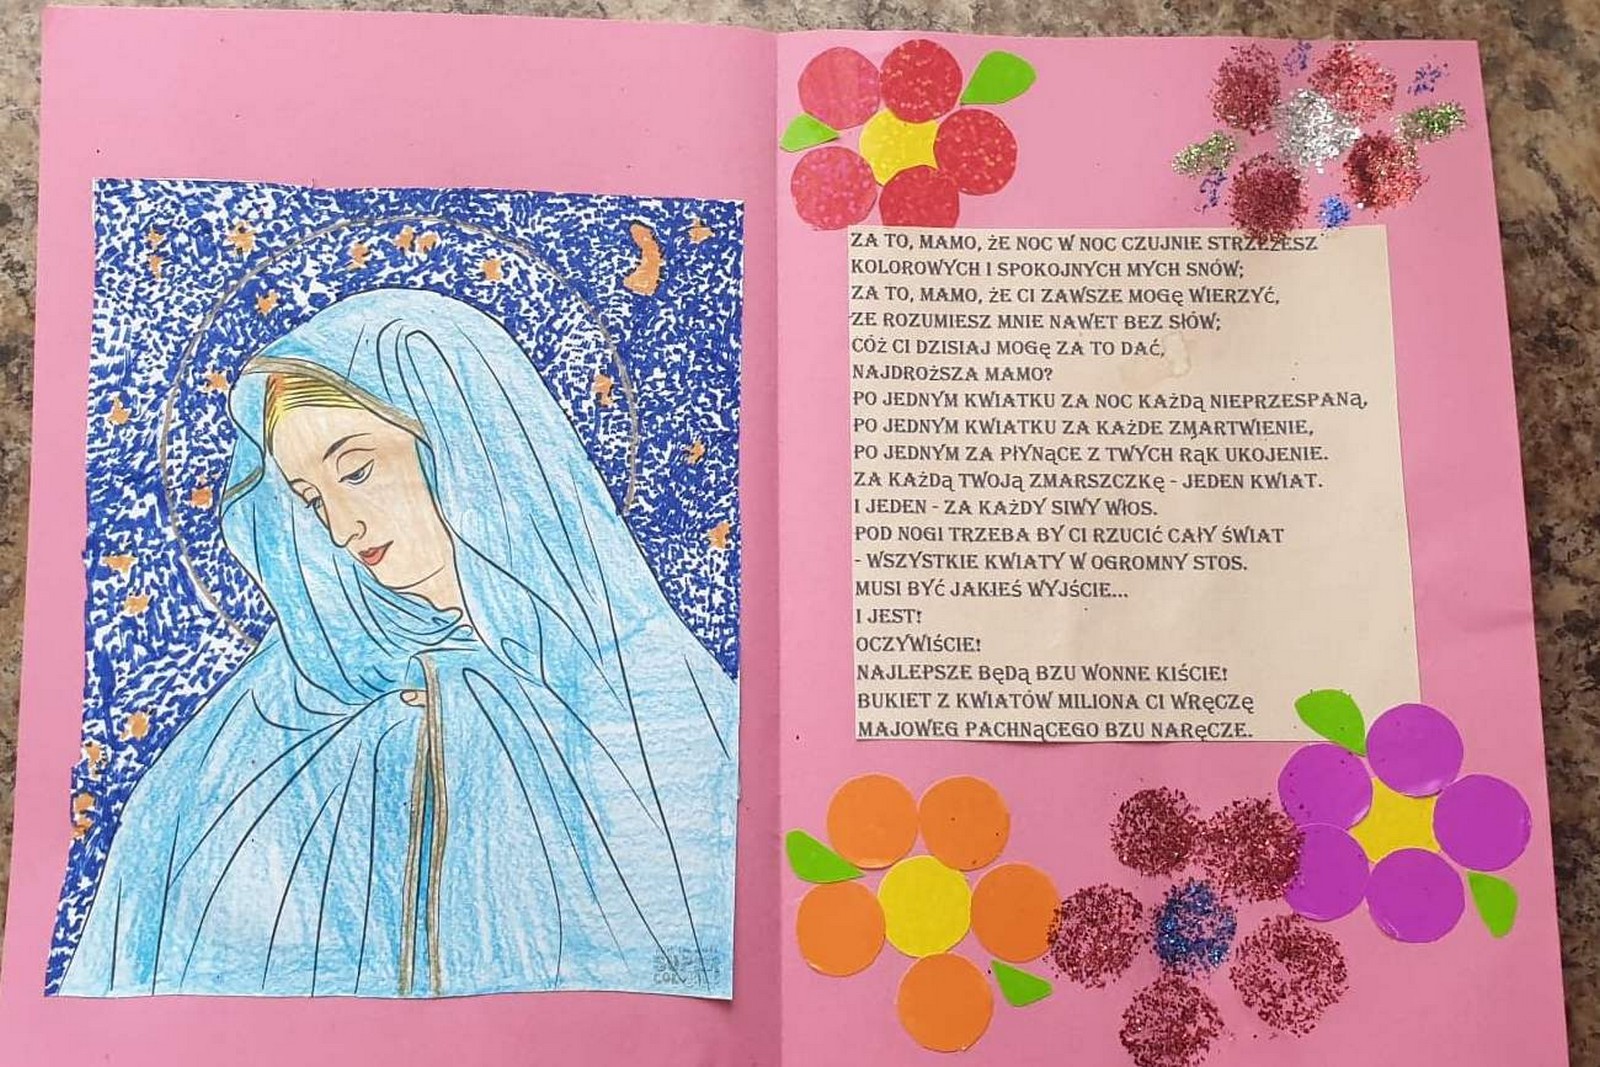 ZA TO, MAMO, ŻE NOC W NOC CZUJNIE STRZEŻESZ
KOLOROWYCH I SPOKOJNYCH MYCH SNÓW;
ZA TO, MAMO, ŻE CI ZAWSZE MOGĘ WIERZYĆ,
ZE ROZUMIESZ MNIE NAWET BEZ SŁÓW;
CÓŻ CI DZISIAJ MOGĘ ZA TO DAĆ,
NAJDROŻSZA MAMO?
PO JEDNYM KWIATKU ZA NOC KAŻDĄ NIEPRZESPANĄ,
PO JEDNYM KWIATKU ZA KAŻDE ZMARTWIENIE,
PO JEDNYM ZA PŁYNĄCE Z TWYCH RĄK UKOJENIE.
ZA KAŻDĄ TWOJĄ ZMARSZCZKĘ - JEDEN KWIAT.
I JEDEN - ZA KAŻDY SIWY WŁOS.
POD NOGI TRZEBA BY CI RZUCIĆ CAŁY ŚWIAT
- WSZYSTKIE KWIATY W OGROMNY STOS.
MUSI BYĆ JAKIEŚ WYJŚCIE...
I JEST!
OCZYWIŚCIE!
NAJLEPSZE BĘDĄ BZU WONNE KIŚCIE!
BUKIET Z KWIATÓW MILIONA CI WRĘCZĘ
MAJOWEG PACHNĄCEGO BZU NARĘCZE.